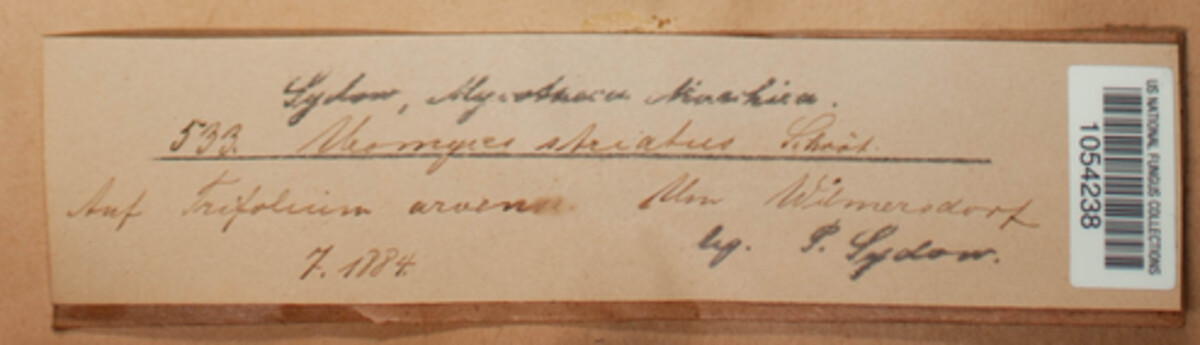 Sydow, Mycotheca Marchica.
533. Uromyces striatus Schröt.
Auf Trifolium arvense. Um Wilmersdorf
7. 1884. leg. P. Sydow.
US NATIONAL FUNGUS COLLECTIONS
1054238